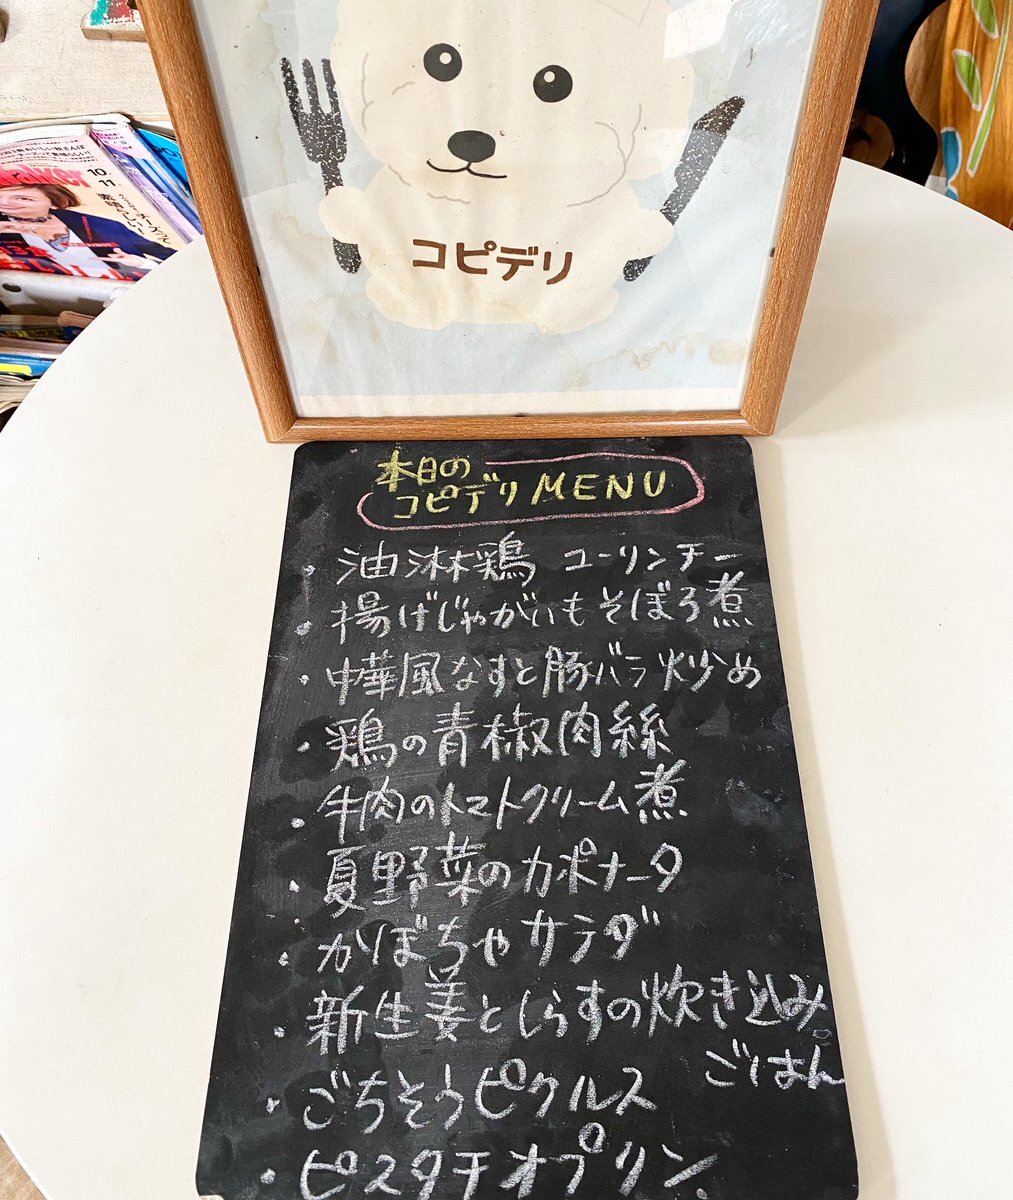 10.
11
コピデリ
本日の
コピデリ MENU
・油淋鶏 ユーリンチー
・揚げじゃがいもそぼろ煮
・中華風なすと豚バラ炒め
・鶏の青椒肉絲
・牛肉のトマトクリーム煮
・夏野菜のカポナータ
・かぼちゃサラダ
・新生姜としらすの炊き込み
ごはん
・ごちそうピクルス
・ピスタチオプリン